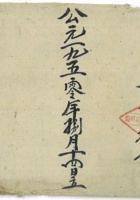 公元一九五零年捌月十四日立